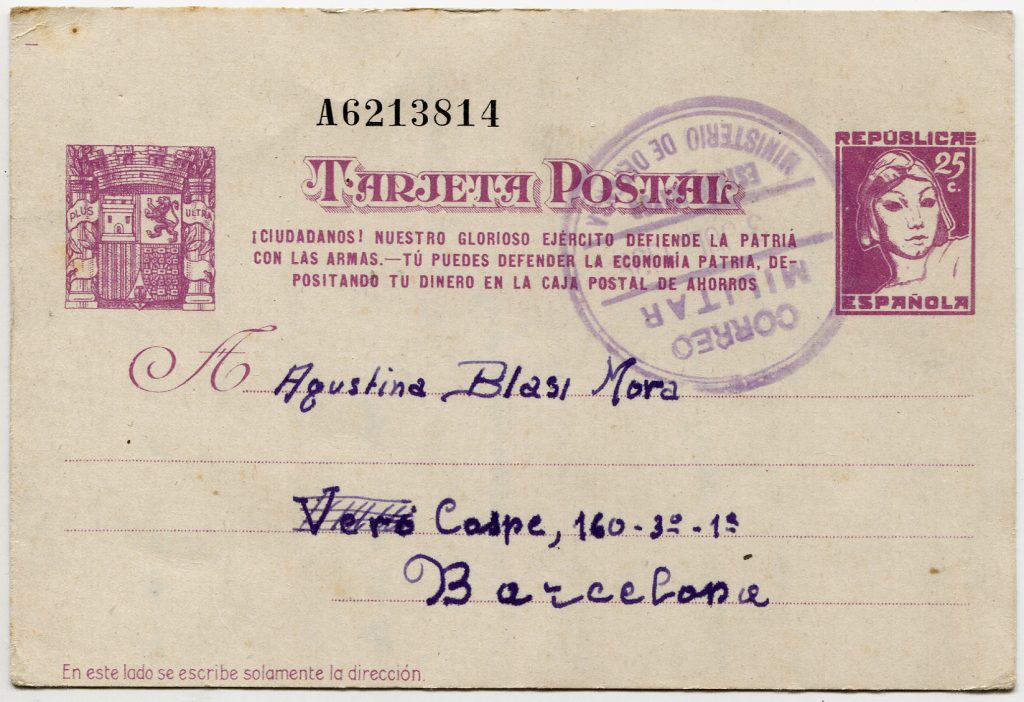 A6213814
TARJETA POSTAL
REPÚBLICA
25
c.
ESPAÑOLA
PLUS ULTRA
¡CIUDADANOS! NUESTRO GLORIOSO EJÉRCITO DEFIENDE LA PATRIA
CON LAS ARMAS.—TÚ PUEDES DEFENDER LA ECONOMÍA PATRIA, DE-
POSITANDO TU DINERO EN LA CAJA POSTAL DE AHORROS
MINISTERIO DE
CORREO
MILITAR
A Agustina Blasi Mora
Caspe, 160-3º-1ª
Barcelona
En este lado se escribe solamente la dirección.